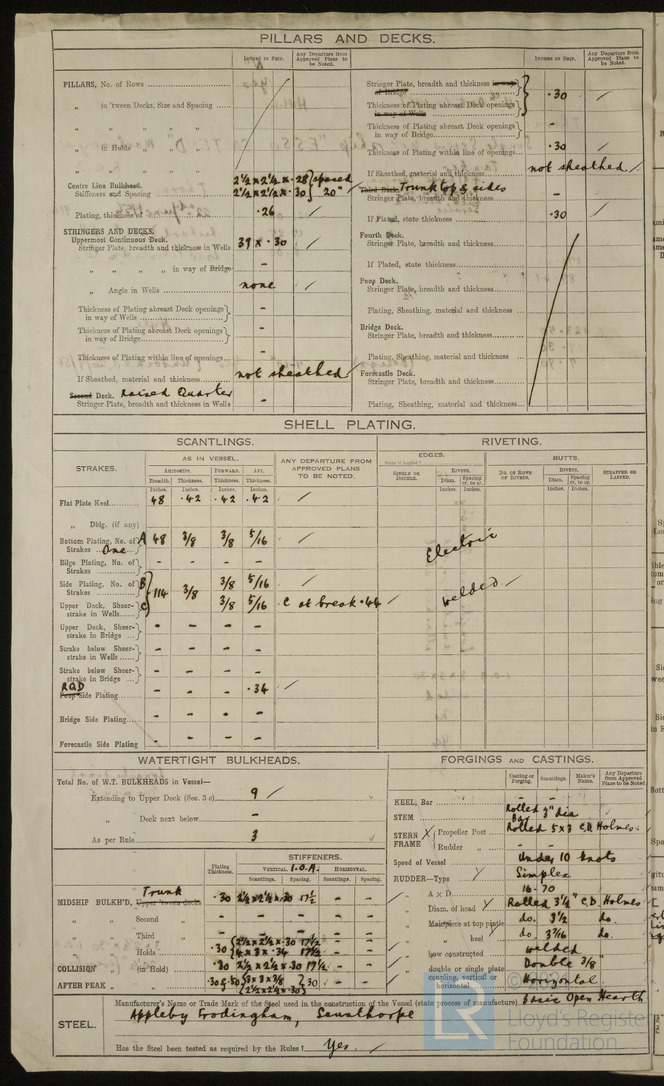 PILLARS AND DECKS.
INCHES IN SHIP.
Any Departure from Approved Plans to be Noted.
PILLARS, No. of Rows
„ in 'tween Decks, Size and Spacing
„ „ „ „
„ in Holds „ „
„ „ „ „
Centre Line Bulkhead.
Stiffeners and Spacing
2½ × 2½ × .28 } spaced
2½ × 2½ × .30 } 20"
Plating, thickness of .26
STRINGERS AND DECKS.
Uppermost Continuous Deck.
Stringer Plate, breadth and thickness in Wells 39 × .30 /
„ „ „ „ in way of Bridge -
„ Angle in Wells none /
Thickness of Plating abreast Deck openings } in way of Wells -
Thickness of Plating abreast Deck openings } in way of Bridge -
Thickness of Plating within line of openings -
If Sheathed, material and thickness not sheathed /
Second Deck. Raised Quarter
Stringer Plate, breadth and thickness in Wells -
INCHES IN SHIP.
Any Departure from Approved Plans to be Noted.
Stringer Plate, breadth and thickness in way of Bridge
Thickness of Plating abreast Deck openings in way of Wells } .30 /
Thickness of Plating abreast Deck openings } in way of Bridge -
Thickness of Plating within line of openings .30 /
If Sheathed, material and thickness not sheathed /
Third Deck. Trunk top & sides
Stringer Plate, breadth and thickness -
If Plated, state thickness .30 /
Fourth Deck.
Stringer Plate, breadth and thickness
If Plated, state thickness
Poop Deck.
Stringer Plate, breadth and thickness
Plating, Sheathing, material and thickness
Bridge Deck.
Stringer Plate, breadth and thickness
Plating, Sheathing, material and thickness
Forecastle Deck.
Stringer Plate, breadth and thickness
Plating, Sheathing, material and thickness
SHELL PLATING.
SCANTLINGS.
RIVETING.
STRAKES.
AS IN VESSEL.
ANY DEPARTURE FROM APPROVED PLANS TO BE NOTED.
EDGES.
BUTTS.
AMIDSHIPS.
FORWARD.
AFT.
Breadth.
Thickness.
Thickness.
Thickness.
SINGLE OR DOUBLE.
RIVETS.
Diam.
Spacing cr. to cr.
NO. OF ROWS OF RIVETS.
RIVETS.
Diam.
Spacing cr. to cr.
STRAPPED OR LAPPED.
Inches.
Inches.
Inches.
Inches.
Inches.
Inches.
Inches.
Inches.
Flat Plate Keel 48 .42 .42 .42 /
„ Dblg. (if any)
Bottom Plating, No. of Strakes One } A 48 3/8 3/8 5/16 /
Electric
Bilge Plating, No. of Strakes } - - - -
Side Plating, No. of Strakes } B 114 3/8 3/8 5/16 /
Upper Deck, Sheerstrake in Wells } C 3/8 5/16 C at break .44 /
welded /
Upper Deck, Sheerstrake in Bridge } - - - -
Strake below Sheerstrake in Wells } - - - -
Strake below Sheerstrake in Bridge } - - - -
RQD
Poop Side Plating - - - .34 /
Bridge Side Plating - - - -
Forecastle Side Plating - - - -
WATERTIGHT BULKHEADS.
Total No. of W.T. BULKHEADS in Vessel—
Extending to Upper Deck (Sec. 3 c) 9 /
„ Deck next below -
As per Rule 3
STIFFENERS.
Plating Thickness.
VERTICAL. I.O.A.
HORIZONTAL.
Scantlings.
Spacing.
Scantlings.
Spacing.
MIDSHIP BULKH'D, Upper 'tween decks Trunk .30 2½ × 2½ × .30 17½ - -
„ „ Second „ - - - - -
„ „ Third „ - - - - -
„ „ Holds .30 { 2½ × 2½ × .30 17½ - -
4 × 3 × .34 17½
COLLISION „ (in Hold) .30 2½ × 2½ × .30 17½ - -
AFTER PEAK „ „ .30 & .50 { 3 × 3 × 3/8 } 30 - -
2½ × 2½ × .30
FORGINGS AND CASTINGS.
Casting or Forging.
Scantlings.
Maker's Name.
Any Departure from Approved Plans to be Noted.
KEEL, Bar - -
STEM Rolled Bar 3" dia
STERN FRAME { Propeller Post Rolled 5 × 3 C.D. Holmes
Rudder „ -
Speed of Vessel Under 10 knots
RUDDER—Type Simplex
„ A × D 16.70
„ Diam. of head Rolled 3¼" C.D. Holmes
„ Mainpiece at top pintle do. 3½ do.
„ „ heel do. 3 3/16 do.
„ how constructed welded
„ double or single plate Double 3/8"
„ coupling, vertical or horizontal Horizontal
STEEL.
Manufacturer's Name or Trade Mark of the Steel used in the construction of the Vessel (state process of manufacture) Basic Open Hearth
Appleby Frodingham, Scunthorpe
Has the Steel been tested as required by the Rules? Yes. /
© 2021
Lloyd's Register
Foundation
LR